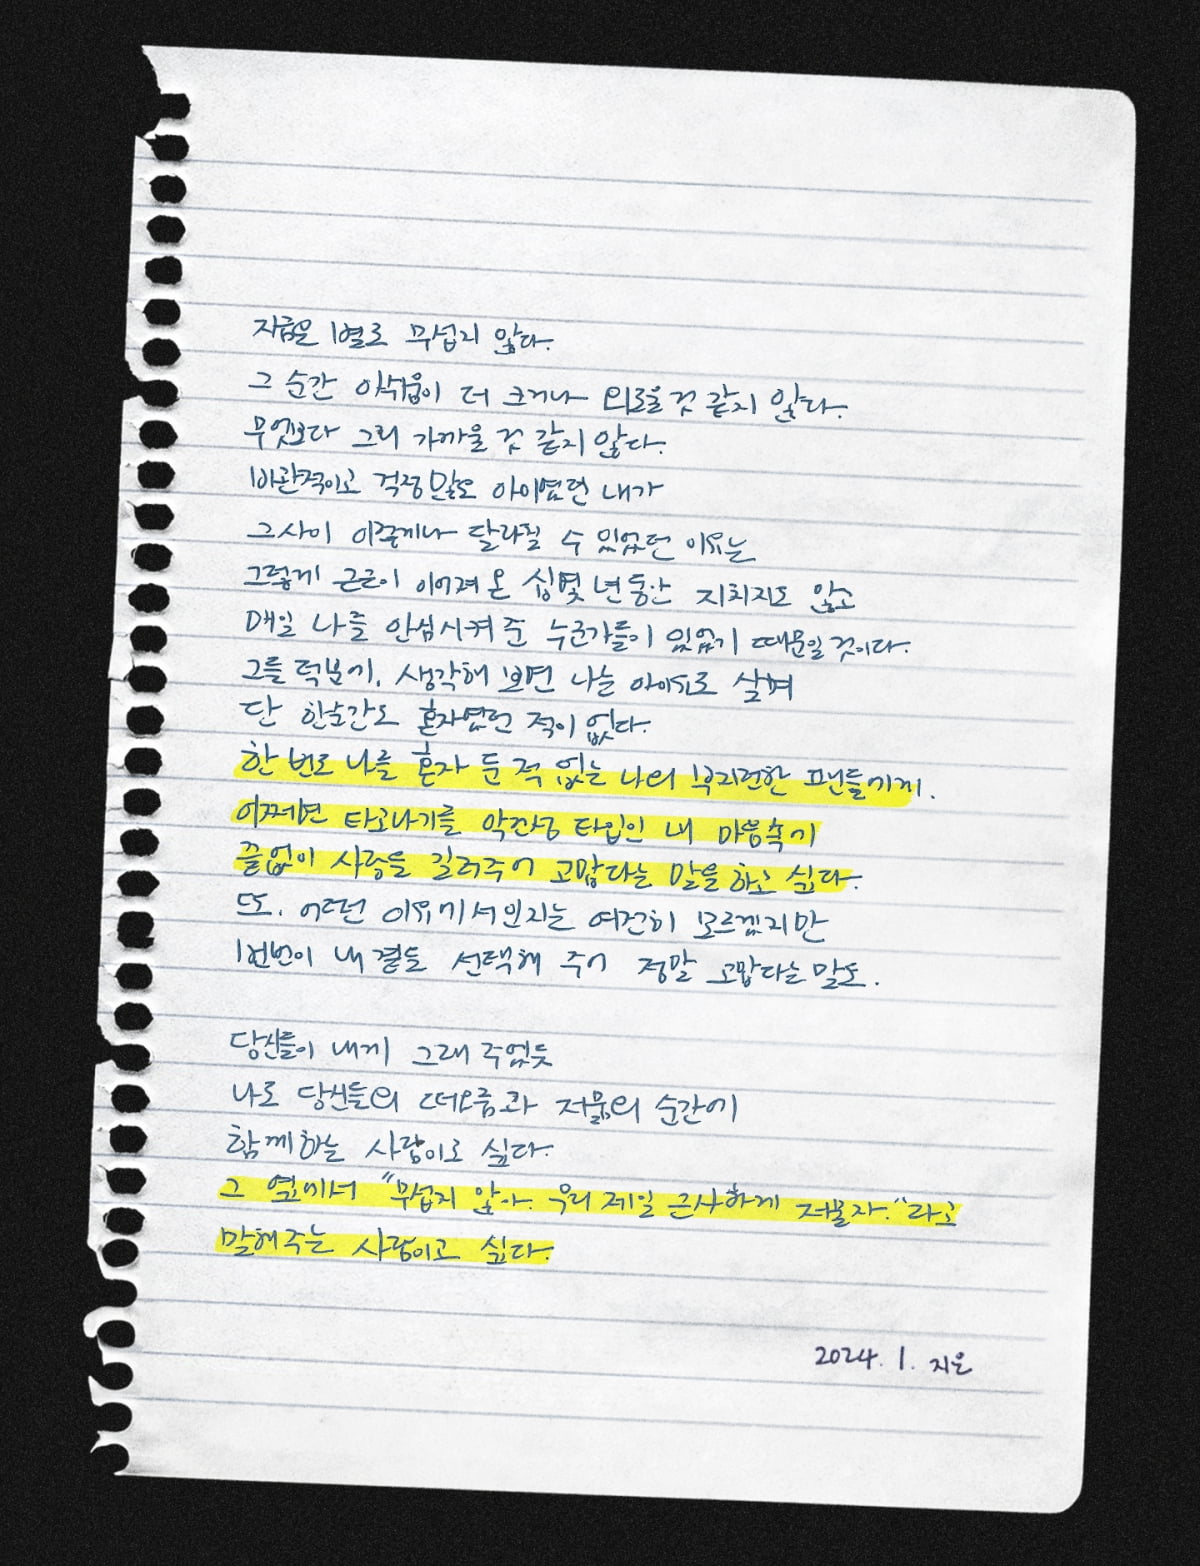 지금은 별로 무섭지 않다.
그 순간 아쉬움이 더 크거나 외로울 것 같지 않다.
무엇보다 그리 가까울 것 같지 않다.
비관적이고 걱정 많던 아이였던 내가
그 사이 이렇게나 달라질 수 있었던 이유는
그렇게 근근이 이어져 온 십몇 년 동안 지치지도 않고
매일 나를 안심시켜 준 누군가들이 있었기 때문일 것이다.
그들 덕분에, 생각해 보면 나는 아이유로 살며
단 한순간도 혼자였던 적이 없다.
한 번도 나를 혼자 둔 적 없는 나의 부지런한 팬들에게.
어쩌면 타고나기를 악건성 타입인 내 마음 속에
끝없이 사랑을 길러주어 고맙다는 말을 하고 싶다.
또, 어떤 이유에서인지는 여전히 모르겠지만
1번번이 내 곁을 선택해 주어 정말 고맙다는 말도.
당신들이 내게 그래 주었듯
나도 당신들의 떠오름과 저묾의 순간에
함께하는 사람이고 싶다.
그 옆에서 "무섭지 않아. 우리 제일 근사하게 저물자."라고
말해주는 사람이고 싶다.
2024. 1. 지은